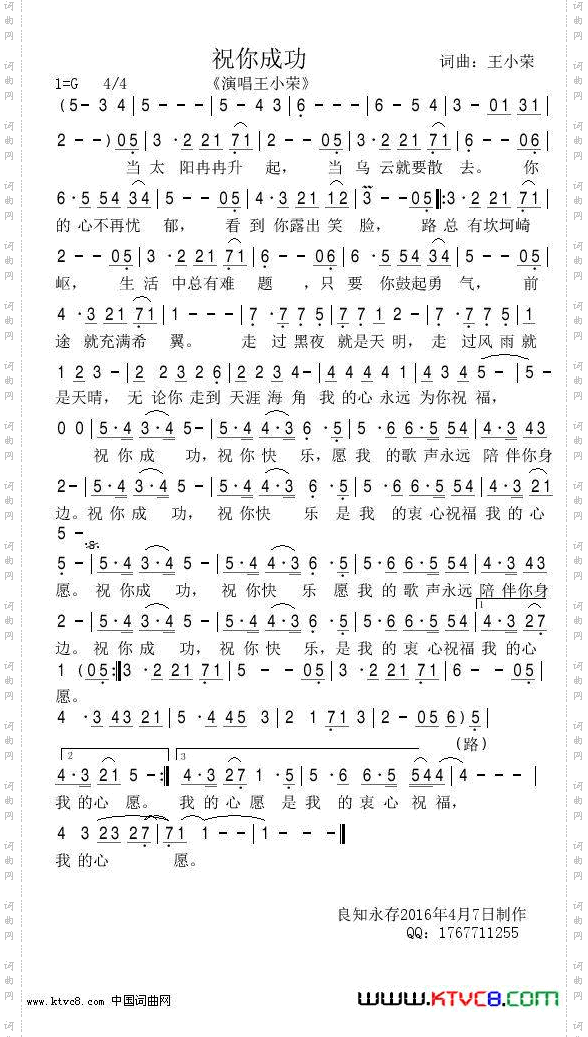 祝你成功
词曲：王小荣
1=G 4/4 《演唱王小荣》
(5- 3 4 | 5 - - - | 5 - 4 3 | 6 - - - | 6 - 5 4 | 3 - 01 31 |
2 - -) 05 | 3 · 2 21 71 | 2 - - 05 | 3 · 2 21 71 | 6 - - 06 |
当 太 阳冉冉升 起， 当 乌 云就要散 去。 你
6 · 5 54 34 | 5 - - 05 | 4 · 3 21 12 | 3 - -05 |: 3 · 2 21 71 |
的 心不再忧 郁， 看 到 你露出 笑 脸， 路 总 有坎坷崎
2 - - 05 | 3 · 2 21 71 | 6 - - 06 | 6 · 5 54 34 | 5 - - 05 |
岖， 生 活 中总有难 题 ，只 要 你鼓起勇 气， 前
4 · 3 21 71 | 1 - - 7 | 7 · 7 7 5 | 7 7 7 1 2 - | 7 · 7 7 5 | 1
途 就充满希 翼。 走 过 黑夜 就是天 明，走 过风 雨 就
1 2 3 - | 2 2 3 2 6 | 2 2 3 4 - | 4 4 4 4 1 | 4 3 4 5 - | 5 -
是天晴， 无 论你 走到 天涯 海 角 我 的心 永远 为你祝 福，
0 0 | 5·4 3 4·3 5 - | 5·4 4·3 6 ·5 | 5 ·6 6·5 54 | 4·3 43
祝 你 成 功，祝 你 快 乐，愿 我 的歌 声永远 陪 伴你身
2 - | 5·4 3 4·3 5 - | 5·4 4·3 6 ·5 | 5 ·6 6·5 54 | 4·3 21
边。祝 你 成 功， 祝 你快 乐 是 我 的衷 心祝福 我 的 心
5 -
5 - | 5·4 3 4·3 5 - | 5·4 4·3 6 ·5 | 5·6 6·5 54 | 4·3 43
愿。 祝 你成 功， 祝 你快 乐 愿 我 的 歌 声永远 陪 伴你身
2 - | 5·4 3 4·3 5 - | 5·4 4·3 6 ·5 | 5·6 6·5 54 | 1 4·3 27
边。祝 你 成 功， 祝 你 快 乐，是 我 的 衷 心祝福 我 的心
1 (05 :| 3 ·2 21 71 | 5 - - 05 | 3 ·2 21 71 | 6 - - 05 |
愿。
4 ·3 43 21 | 5 ·4 45 3 | 2 1 71 3 | 2 - 05 6 ) 5 |
(路)
2 3
4·3 21 5 - :| 4·3 27 1 ·5 | 5 ·6 6·5 544 | 4 - - - |
我 的心 愿。 我 的 心 愿 是 我 的 衷心 祝 福，
4 3 23 27 | 71 1 - - | 1 - - - ||
我 的心 愿。
良知永存2016年4月7日制作
QQ: 1767711255
www.ktvc8.com 中国词曲网
WWW.KTVC8.COM